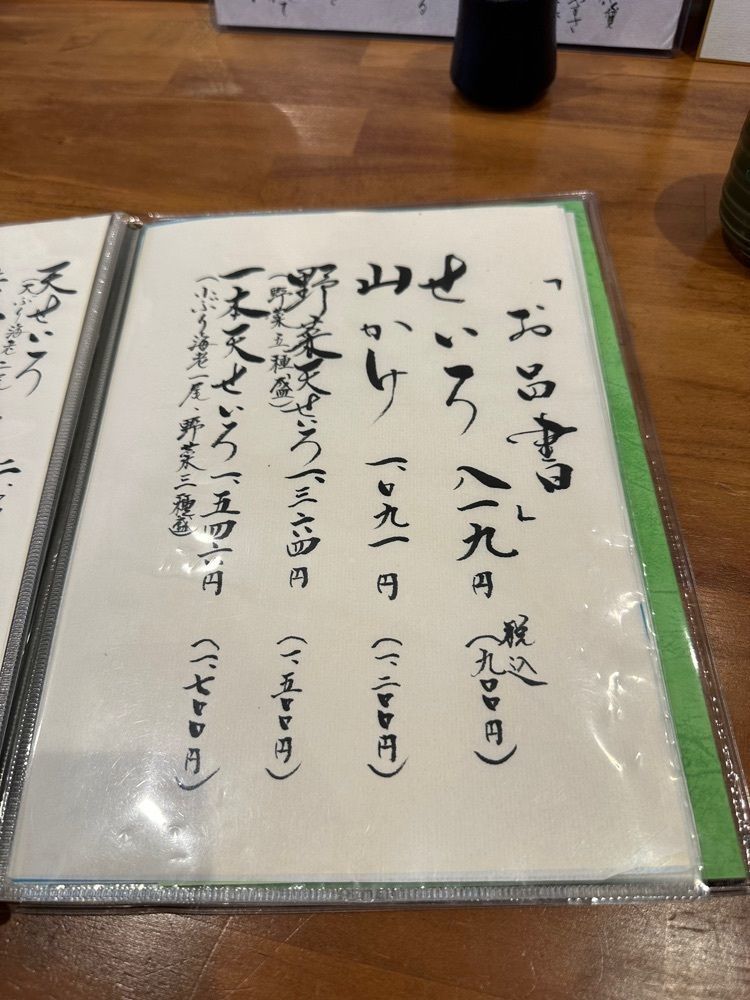 「お品書」
税込
せいろ 八一九円 (九〇〇円)
山かけ 一、〇九一円 (一、二〇〇円)
野菜天せいろ 一、三六四円 (一、五〇〇円)
(野菜五種盛)
一本天せいろ 一、五四六円 (一、七〇〇円)
(小ぶり海老一尾、野菜三種盛)
天せいろ
(天ぷり海老二尾